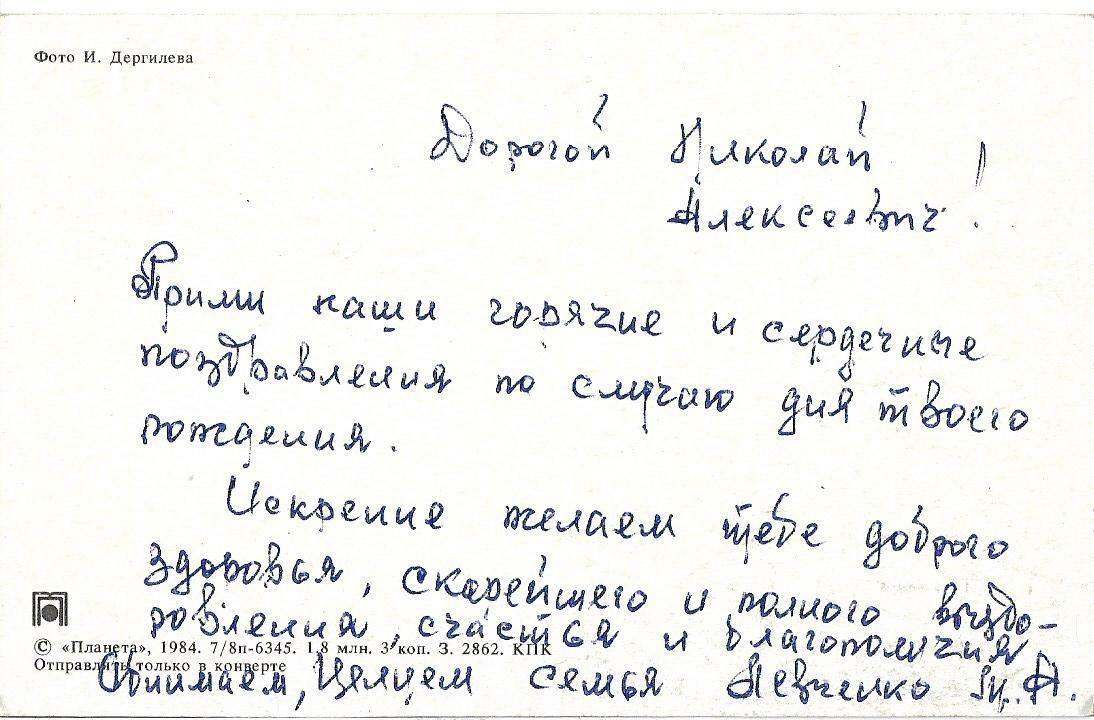 Фото И. Дергилева
Дорогой Николай
Алексеевич!
Прими наши горячие и сердечные
поздравления по случаю дня твоего
рождения.
Искренне желаем тебе доброго
здоровья, скорейшего и полного выздо-
ровления, счастья и благополучия
© «Планета», 1984. 7/8п-6345. 1,8 млн. 3 коп. З. 2862. КПК
Отправлять только в конверте
Обнимаем, целуем семья Левченко